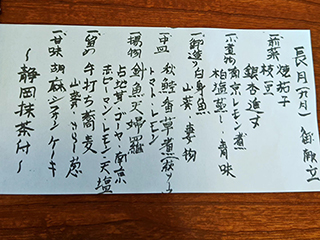 長月(九月) 御献立
一前菜 焼茄子
枝豆
銀杏進丈
一煮物 南京レモン煮
柏塩蒸し・青味
一御造り 白身魚
山葵・妻物
一中皿 秋鯖香草煮
トマト・レモン
一揚物 釣魚天婦羅
占地茸・ゴーヤ・南京
赤ピーマン・レモン・天塩
一留め 手打ち蕎麦
山葵・きざみ葱
一甘味 胡麻シフォンケーキ
〜静岡抹茶付〜